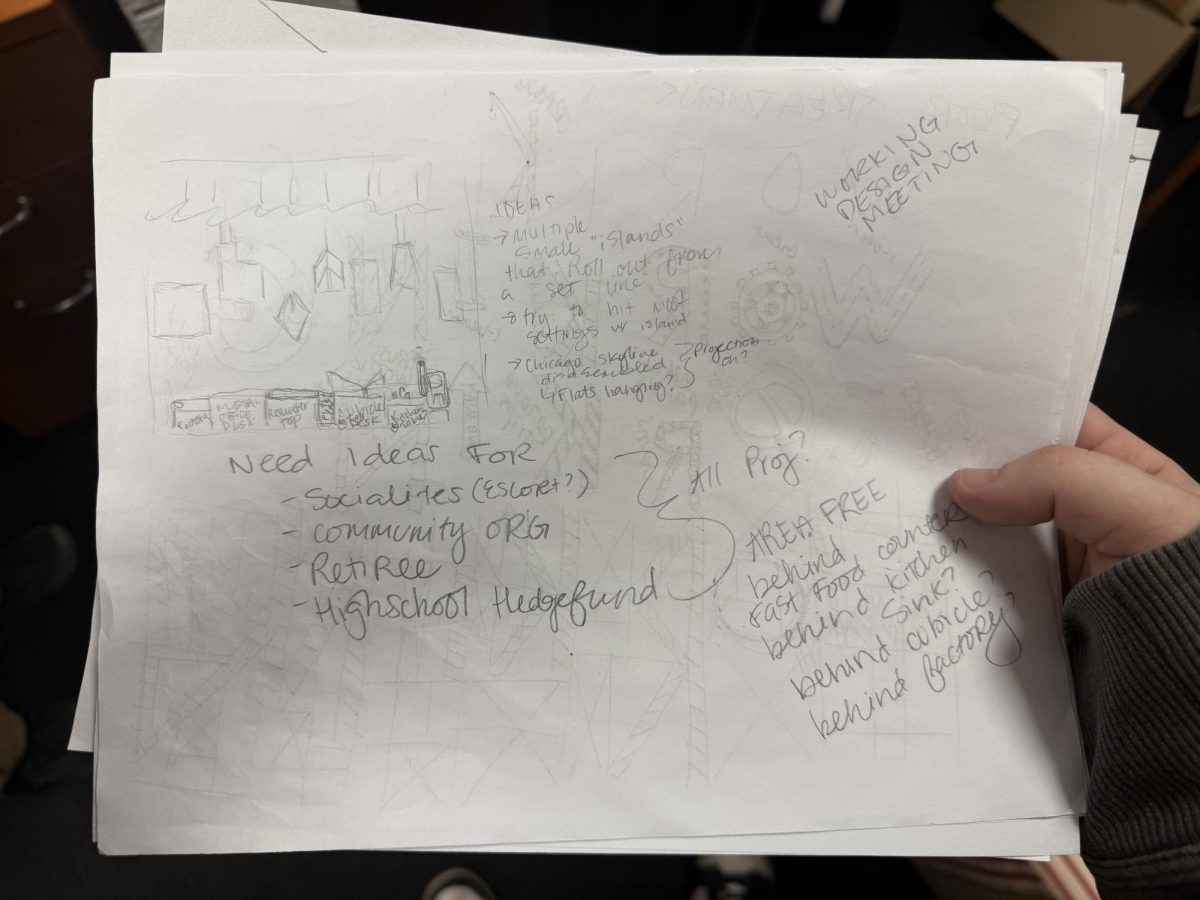 WORKING
DESIGN
MEETING
IDEAS
→ Multiple
small "islands"
that roll out from
a set line
→ try to hit most
settings w/ island
→ Chicago skyline
dissembled
↳ Flats hanging?
Projection
on?
DESK
counter
top
cubicle
DESK
NEED IDEAS FOR
- Socialites (Escort?)
- community ORG
- RetiRee
- Highschool Hedgefund
All Proj?
AREA FREE
behind
fast food counter
behind kitchen
sink?
behind cubicle?
behind factory?